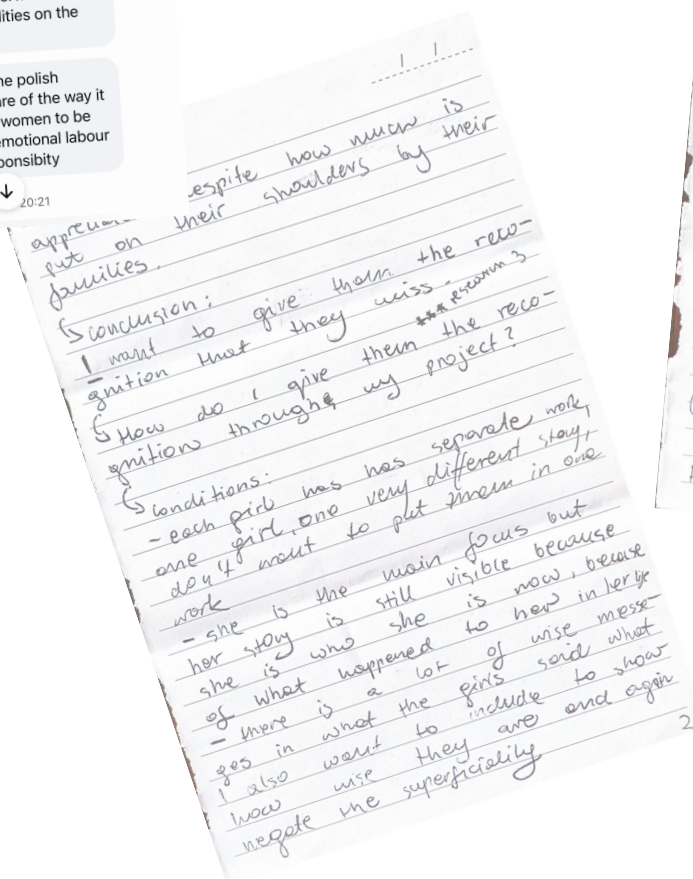 lities on the
he polish
re of the way it
women to be
emotional labour
ponsibity
20:21
espite how much is
put on their shoulders by their
families.
↳ conclusion:
I want to give them the reco-
gnition that they miss.
*** research 3
↳ How do I give them the reco-
gnition through my project?
↳ conditions:
- each girl has has separate work,
one girl, one very different story,
don't want to put them in one
work
- she is the main focus but
her story is still visible because
she is who she is now, because
of what happened to her in her life
- there is a lot of wise messa-
ges in what the girls said what
I also want to include to show
how wise they are and again
negate the superficiality
2